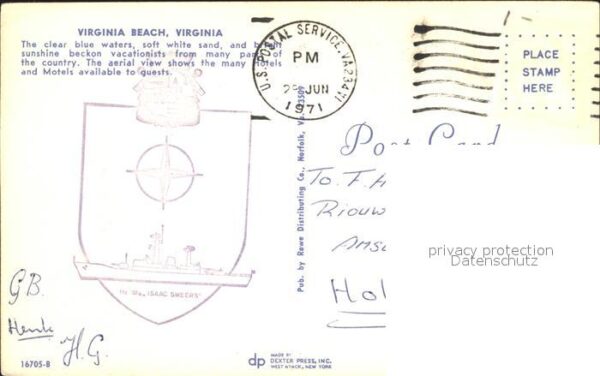 VIRGINIA BEACH, VIRGINIA
The clear blue waters, soft white sand, and
sunshine beckon vacationists from many parts of
the country. The aerial view shows the many Hotels
and Motels available to guests.
U.S. POSTAL SERVICE, VA
PM
JUN
1971
PLACE
STAMP
HERE
Post Card
To. F.
privacy protection
Datenschutz
Pub. by Rowe Distributing Co., Norfolk, Va.
Hr. Ms. "ISAAC SWEERS"
GB.
Henk
H.G.
16705-B
dp
MADE BY
DEXTER PRESS, INC.
WEST NYACK, NEW YORK